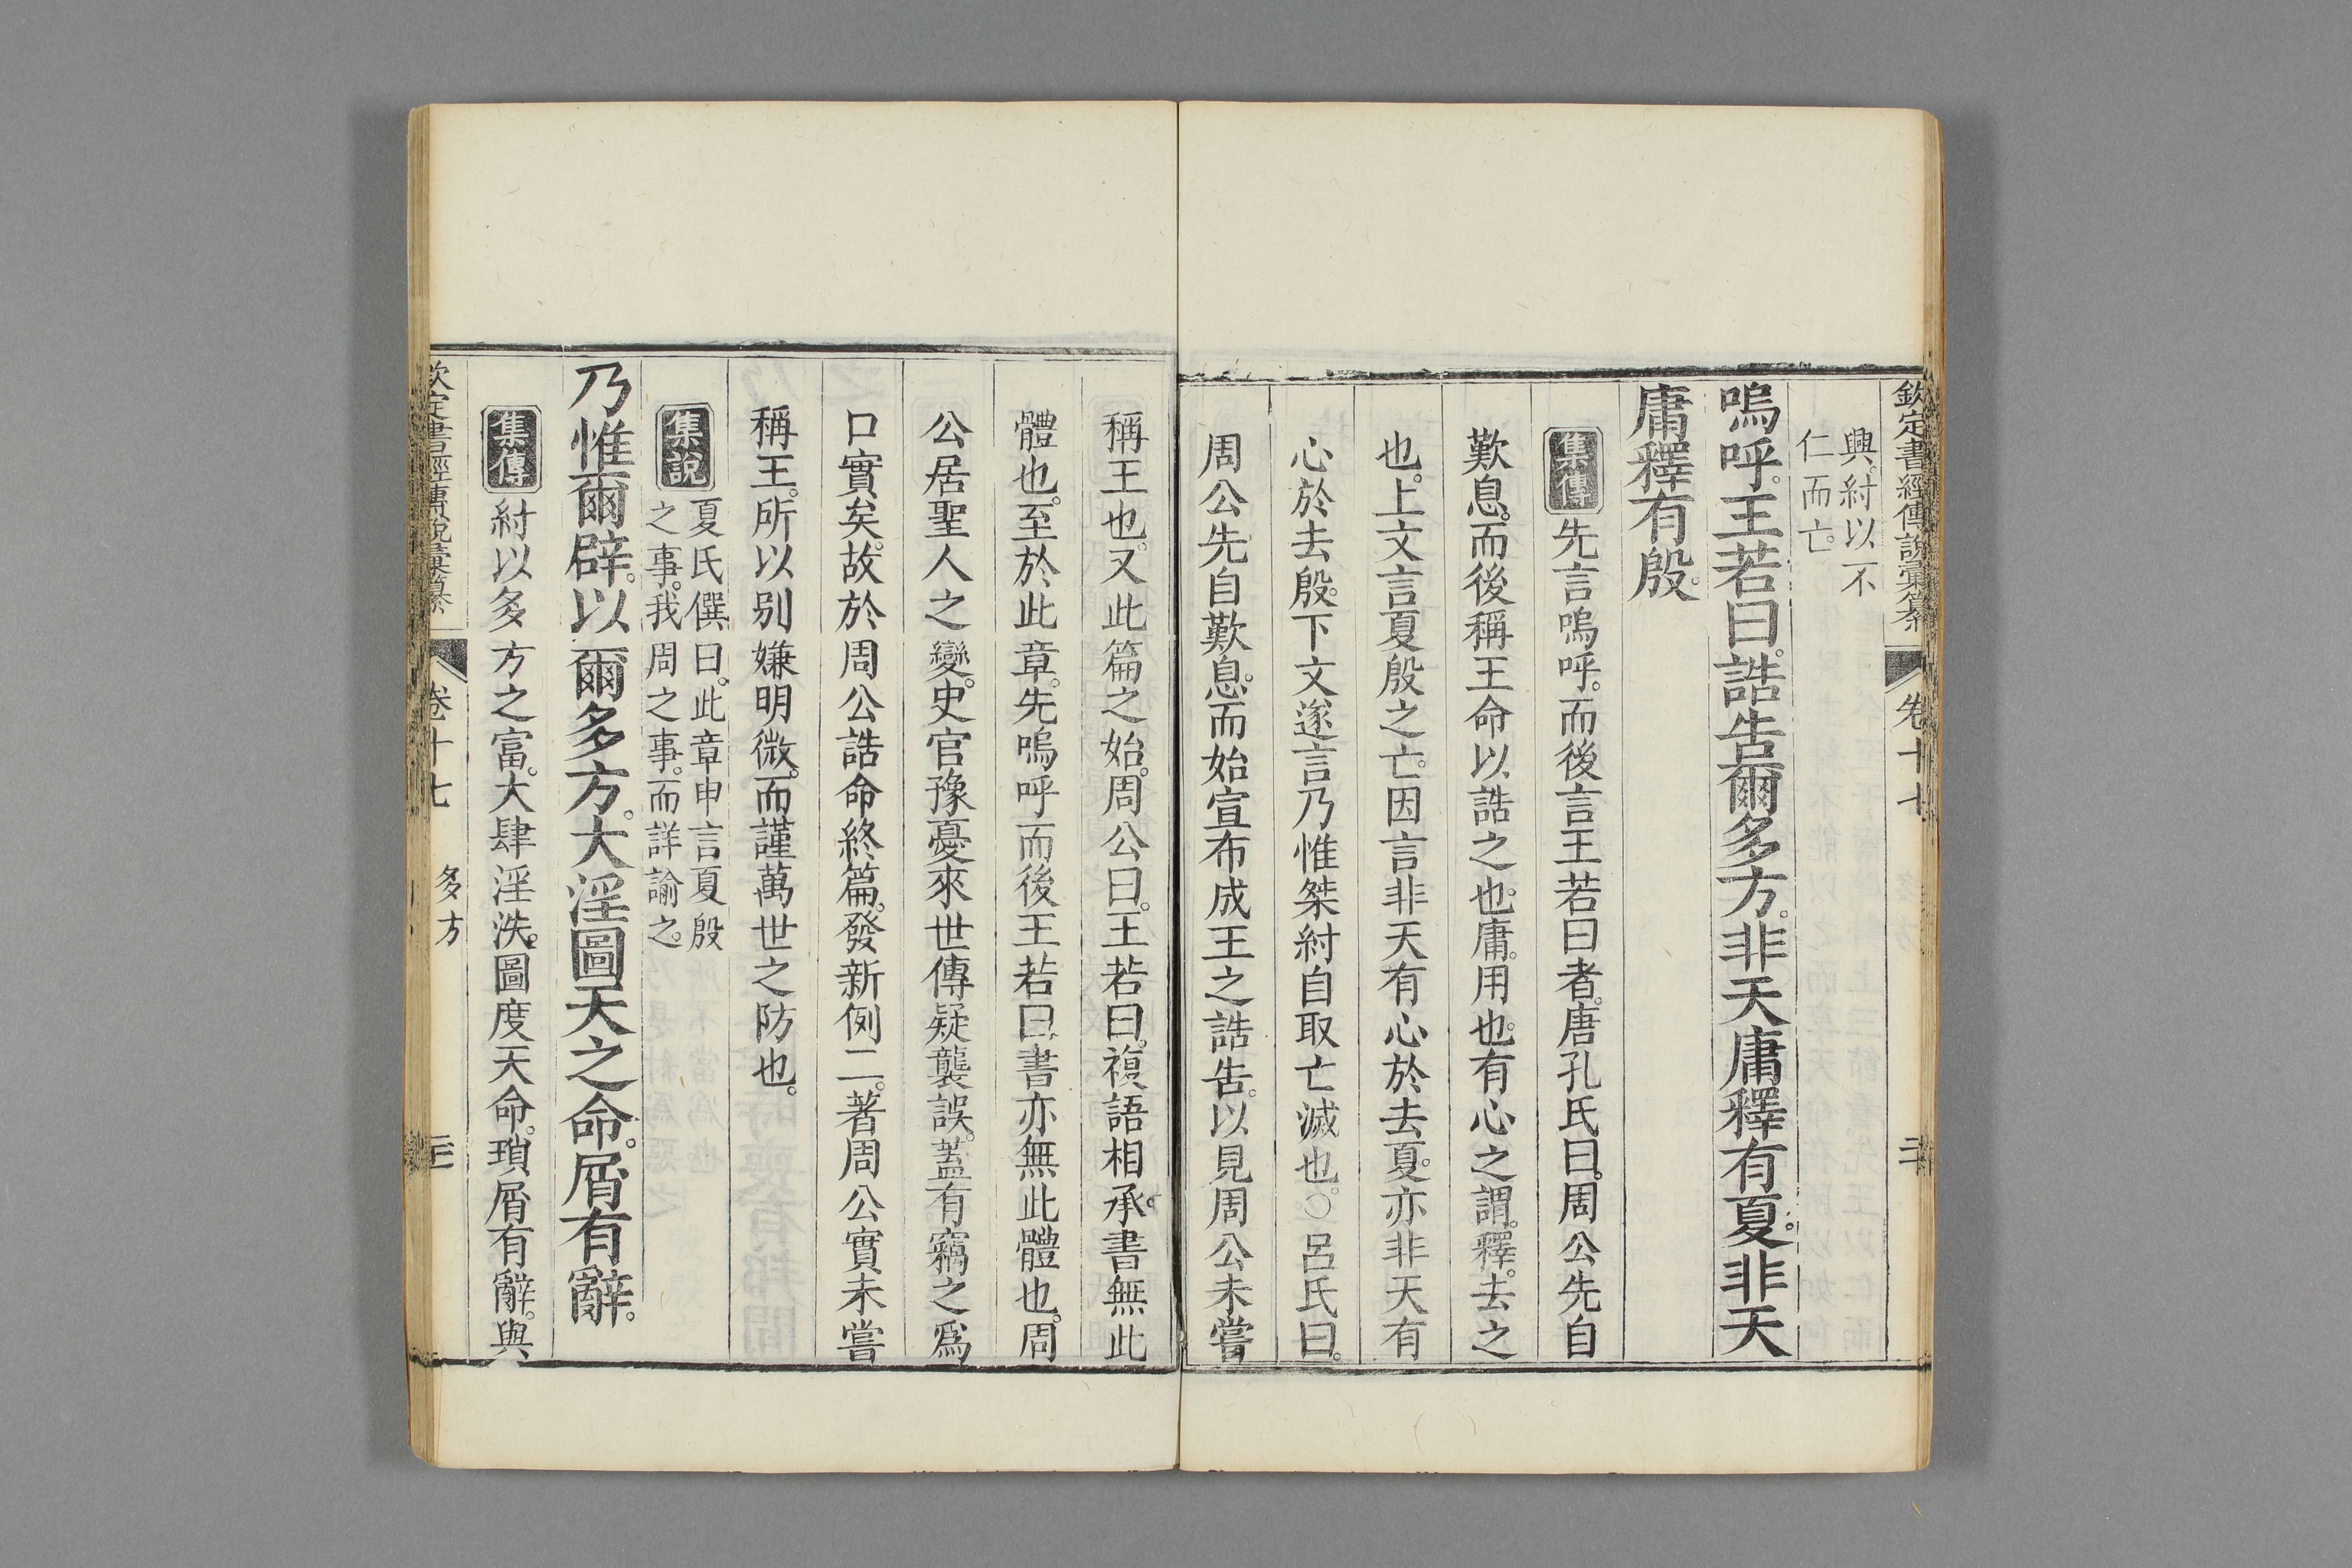 欽定書經傳說彙纂 卷十七
興。紂以不
仁而亡。
嗚呼。王若曰。誥告爾多方。非天庸釋有夏。非天
庸釋有殷。
集傳 先言嗚呼。而後言王若曰者。唐孔氏曰。周公先自
歎息。而後稱王命以誥之也。庸。用也。有心之謂。釋。去之
也。上文言夏殷之亡。因言非天有心於去夏。亦非天有
心於去殷。下文遂言乃惟桀紂自取亡滅也。○呂氏曰。
周公先自歎息。而始宣布成王之誥告。以見周公未嘗
稱王也。又此篇之始。周公曰。王若曰。複語相承。書無此
體也。至於此章。先嗚呼而後王若曰。書亦無此體也。周
公居聖人之變。史官豫憂來世傳疑襲誤。蓋有竊之爲
口實矣。故於周公誥命終篇。發新例二。著周公實未嘗
稱王。所以別嫌明微。而謹萬世之防也。
集說 夏氏僎曰。此章申言夏殷
之事。我周之事。而詳諭之。
乃惟爾辟。以爾多方。大淫圖天之命。屑有辭。
集傳 紂以多方之富。大肆淫泆。圖度天命。瑣屑有辭。與
欽定書經傳說彙纂 卷十七 多方